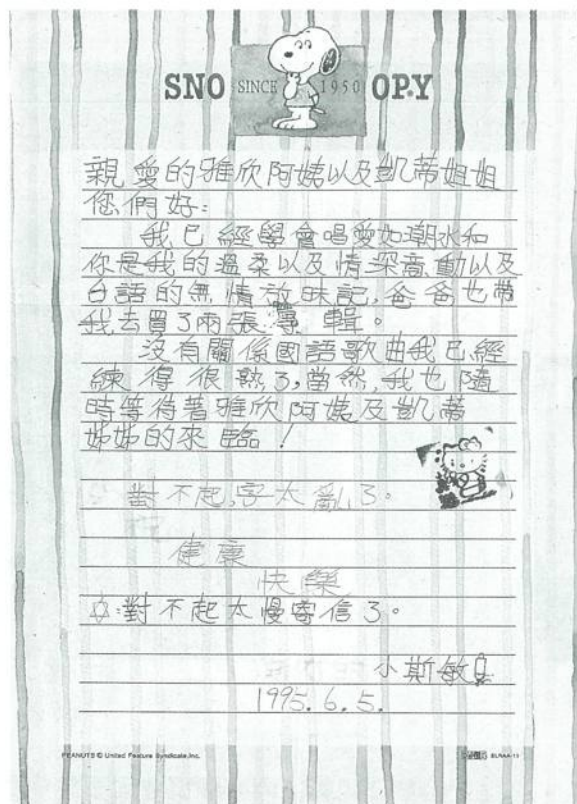 SNO SINCE 1950 OPY
親愛的雅欣阿姨以及凱蒂姐姐
您們好:
我已經學會唱愛如潮水和
你是我的溫柔以及情深意動以及
台語的無情放昧記,爸爸也帶
我去買了兩張專輯。
沒有關係國語歌曲我已經
練得很熟了,當然,我也隨
時等待著雅欣阿姨及凱蒂
姊姊的來臨!
對不起,字太亂了。
健康
快樂
✡:對不起太慢寄信了。
小斯敏
1995.6.5.
PEANUTS © United Feature Syndicate,Inc.